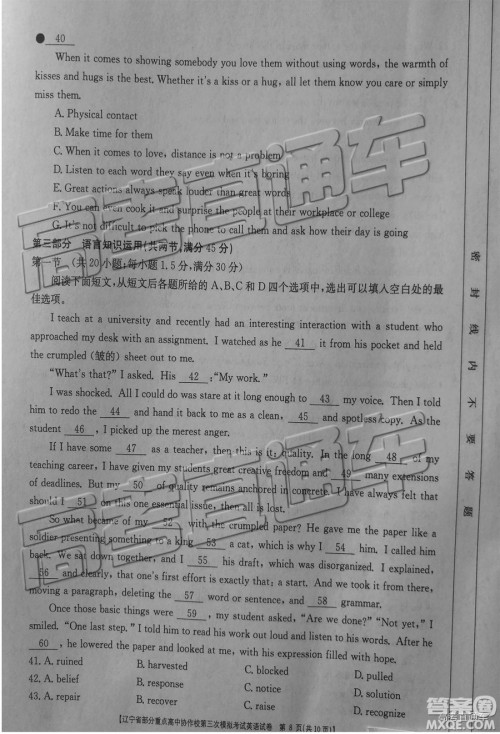 40
When it comes to showing somebody you love them without using words, the warmth of
kisses and hugs is the best. Whether it's a kiss or a hug, all let them know you care or simply
miss them.
A. Physical contact
B. Make time for them
C. When it comes to love, distance is not a problem
D. Listen to each word they say even it's boring
E. Great actions always speak louder than great words
F. You can even cook it and surprise the people at their workplace or college
G. It's not difficult to pick the phone to call them and ask how their day is going
第三部分 语言知识运用(共两节,满分45分)
第一节 (共20小题;每小题1.5分,满分30分)
阅读下面短文,从短文后各题所给的A、B、C和D四个选项中,选出可以填入空白处的最
佳选项。
I teach at a university and recently had an interesting interaction with a student who
approached my desk with an assignment. I watched as he 41 it from his pocket and held
the crumpled (皱的) sheet out to me.
"What's that?" I asked. His 42 : "My work."
I was shocked. All I could do was stare at it long enough to 43 my voice. Then I told
him to redo the 44 and hand it back to me as a clean, 45 and spotless copy. As the
student 46 , I picked up the merest anger.
If I have some 47 as a teacher, then this is it: quality. In the long 48 of my
teaching career, I have given my students great creative freedom and 49 many extensions
of deadlines. But my 50 of quality remains anchored in concrete. I have always felt that
should I 51 on this one essential issue, then all is lost.
So what became of my 52 with the crumpled paper? He gave me the paper like a
soldier presenting something to a king 53 a cat, which is why I 54 him, I called him
back. We sat down together, and I 55 his draft, which was disorganized. I explained,
56 and clearly, that one's first effort is exactly that; a start. And we took it from there,
moving a paragraph, deleting the 57 word or sentence, and 58 grammar.
Once those basic things were 59 , my student asked, "Are we done?" "Not yet," I
smiled. "One last step." I told him to read his work out loud to himself. No sooner after he
60 , he lowered the paper and looked at me, with his expression filled with hope.
41. A. ruined B. harvested C. blocked D. pulled
42. A. belief B. response C. notice D. solution
43. A. repair B. recover C. raise D. recall
【辽宁省部分重点高中协作校第三次模拟考试英语试卷 第8页(共10页)】
密封线内不要答题
高考直通车
高考直通车
答案圈